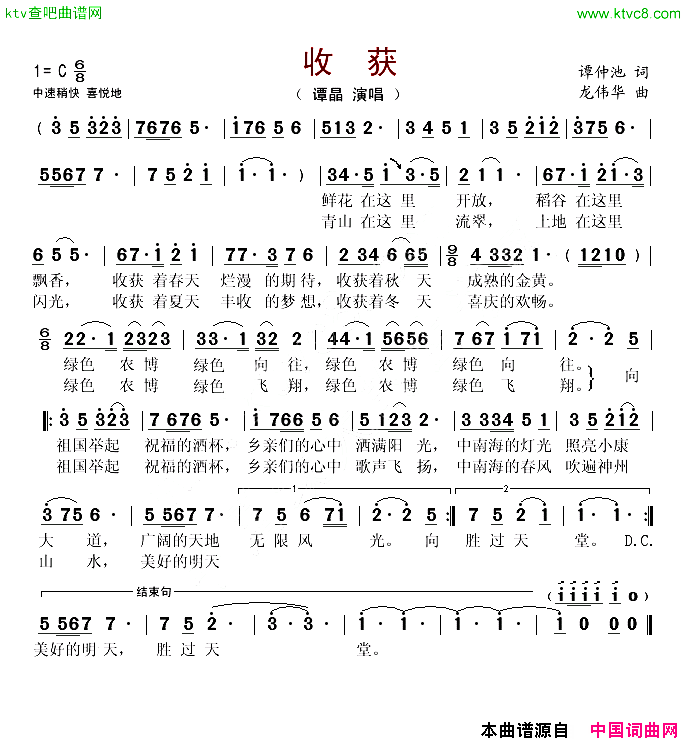 ktv查吧曲谱网
www.ktvc8.com
收 获
1=C 6/8
谭仲池 词
中速稍快 喜悦地
（谭晶 演唱）
龙伟华 曲
( 3 5 323 | 7676 5· | 176 5 6 | 513 2· | 3 4 5 1 | 3 5 212 | 375 6· |
5567 7· | 7 5 2 1 | 1· 1· ) | 34·5 1 3·5 | 2 1 1 | 67·1 21·3 |
鲜花 在这 里 开放， 稻谷 在这里
青山 在这 里 流翠， 土地 在这里
6 5 5· | 67·1 2 1 | 77·3 7 6 | 1·2 3 4 65 | 9/8 4 332 1· (1210) |
飘香， 收获 着春天 烂漫 的期待，收获着秋 天 成熟的金黄。
闪光， 收获 着夏天 丰收 的梦想，收获着冬 天 喜庆的欢畅。
6/8 22·1 2323 | 33·1 32 2 | 44·1 5656 | 7 67 1 71 | 2·2 5 |
绿色 农博 绿色 向 往，绿色 农博 绿色 向 往。
向
绿色 农博 绿色 飞 翔，绿色 农博 绿色 飞 翔。
‖: 3 5 323 | 7 676 5· | 1 766 5 6 | 5 123 2· | 3 334 5 1 | 3 5 212 |
祖国举起 祝福的酒杯，乡亲们的心中 洒满阳 光，中南海的灯光 照亮小康
祖国举起 祝福的酒杯，乡亲们的心中 歌声飞 扬，中南海的春风 吹遍神州
1
2
3 75 6· | 5 567 7· | 7 5 6 71 | 2·2 5 :‖ 7 5 2 1 | 1· 1· ‖
大 道， 广阔的天地 无限风 光。向 胜过天 堂。 D.C.
山 水， 美好的明天
结束句
( 1 1 1 1 1 )
5 567 7· | 7 5 2· | 3·3· | 1·1· | 1·1· | 1 0 0 0 ‖
美好的明天， 胜过天 堂。
本曲谱源自 中国词曲网